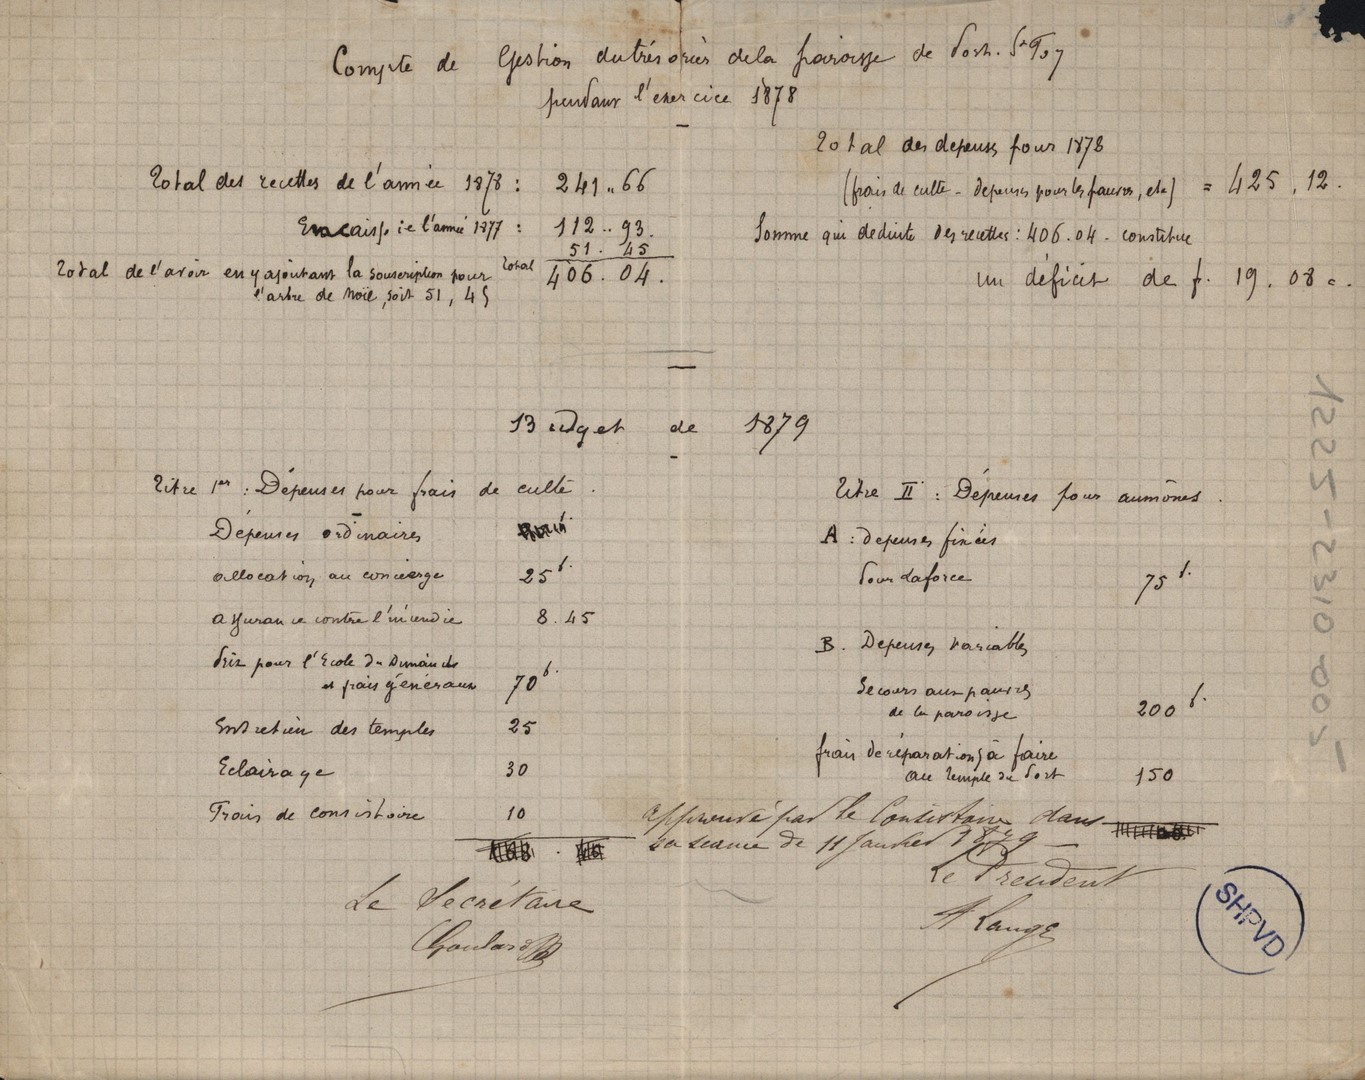 Compte de Gestion du trésorier de la paroisse de Port. Ste Foy
pendant l'exercice 1878
Total des recettes de l'année 1878 : 241.. 66
Encaisse de l'année 1877 : 112.. 93.
51. 45
Total de l'avoir en y ajoutant la souscription pour total 406. 04.
l'arbre de Noël, soit 51, 45
Total des depenses pour 1878
(frais de culte - depenses pour les pauvres, etc) = 425, 12.
Somme qui déduite des recettes : 406.04. constitue
un déficit de f. 19. 08 c.
Budget de 1879
Titre 1er : Dépenses pour frais de culte.
Dépenses ordinaires
allocation au concierge 25 f.
assurance contre l'incendie 8. 45
Prix pour l'Ecole du Dimanche
et frais généraux 70 f.
Entretien des temples 25
Eclairage 30
Frais de consistoire 10
Titre II : Dépenses pour aumônes.
A : depenses fixées
Pour Laforce 75 f.
B. Depenses variables
Secours aux pauvres
de la paroisse 200 f.
frais de réparations à faire
au temple du Port 150
approuvé par le Consistoire dans
sa séance de 11 Janvier 1879
Le Secrétaire
Le President
A Lauga
SHPVD
1222-0132-002